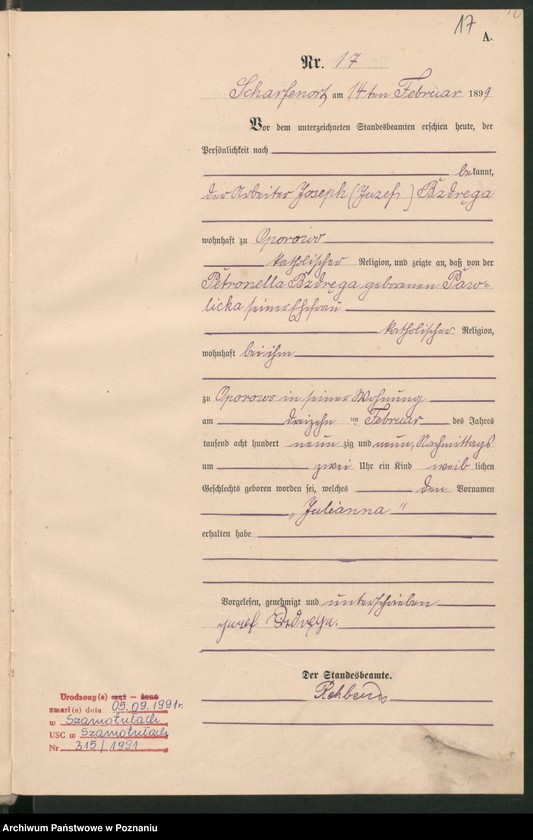 17
A.
Nr. 17
Scharfenort am 14ten Februar 1899
Vor dem unterzeichneten Standesbeamten erschien heute, der
Persönlichkeit nach
bekannt,
der Arbeiter Joseph (Juzef) Bzdręga
wohnhaft zu Oporowo
katholischer Religion, und zeigte an, daß von der
Petronella Bzdręga geborenen Paw-
licka seiner Ehefrau
katholischer Religion,
wohnhaft bei ihm
zu Oporowo in seiner Wohnung
am dreizehn ten Februar des Jahres
tausend acht hundert neun zig und neun, Nachmittags
um zwei Uhr ein Kind weib lichen
Geschlechts geboren worden sei, welches den Vornamen
„Julianna"
erhalten habe
Vorgelesen, genehmigt und unterschrieben
Juzef Bzdręga.
Der Standesbeamte.
Urodzony(a) mąż – żona
zmarł(a) dnia 05.09.1991r.
w Szamotułach
USC w Szamotułach
Nr 315/1991
Archiwum Państwowe w Poznaniu